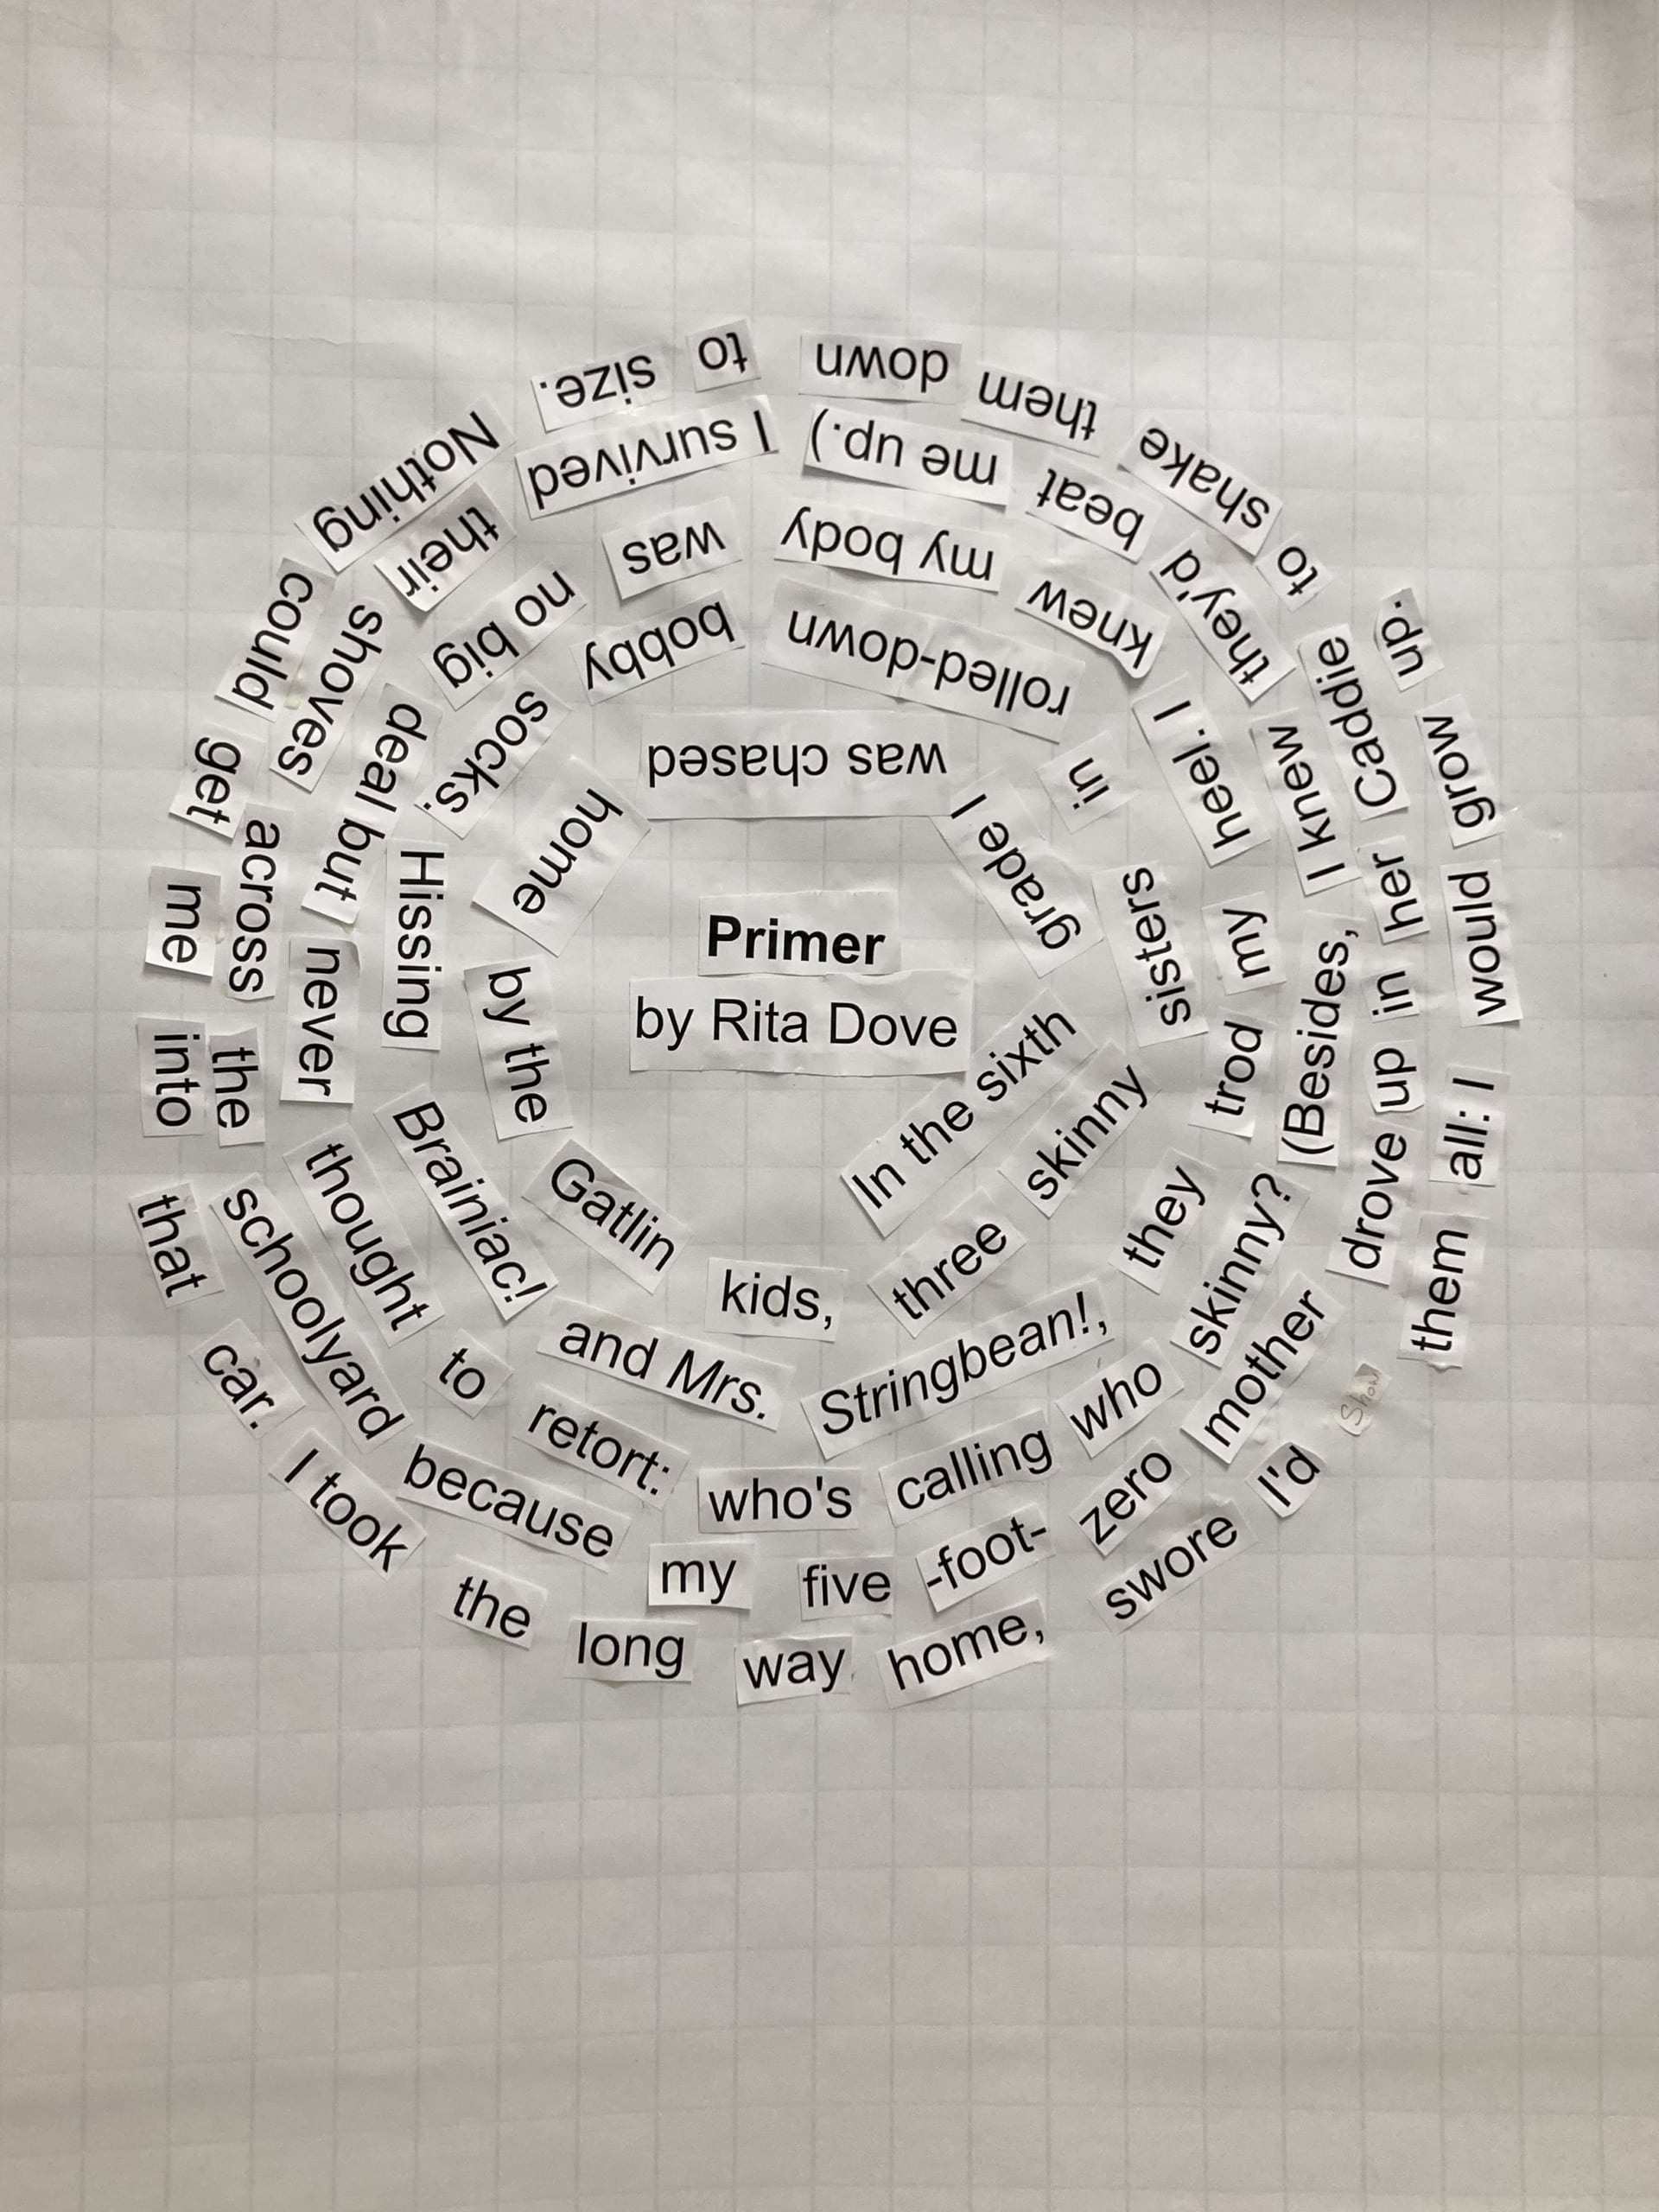 Primer
by Rita Dove
In the sixth grade I was chased home by the Gatlin kids,
three skinny sisters in rolled-down bobby socks. Hissing Brainiac! and Mrs.
Stringbean!, they trod my heel. I knew my body was no big deal but never thought to retort:
who's calling who skinny? (Besides, I knew they'd beat me up.) I survived their shoves across the schoolyard because
my five -foot- zero mother drove up in her Caddie to shake them down to size. Nothing could get me into that car. I took the long
way home, swore I'd Show them all: I would grow up.